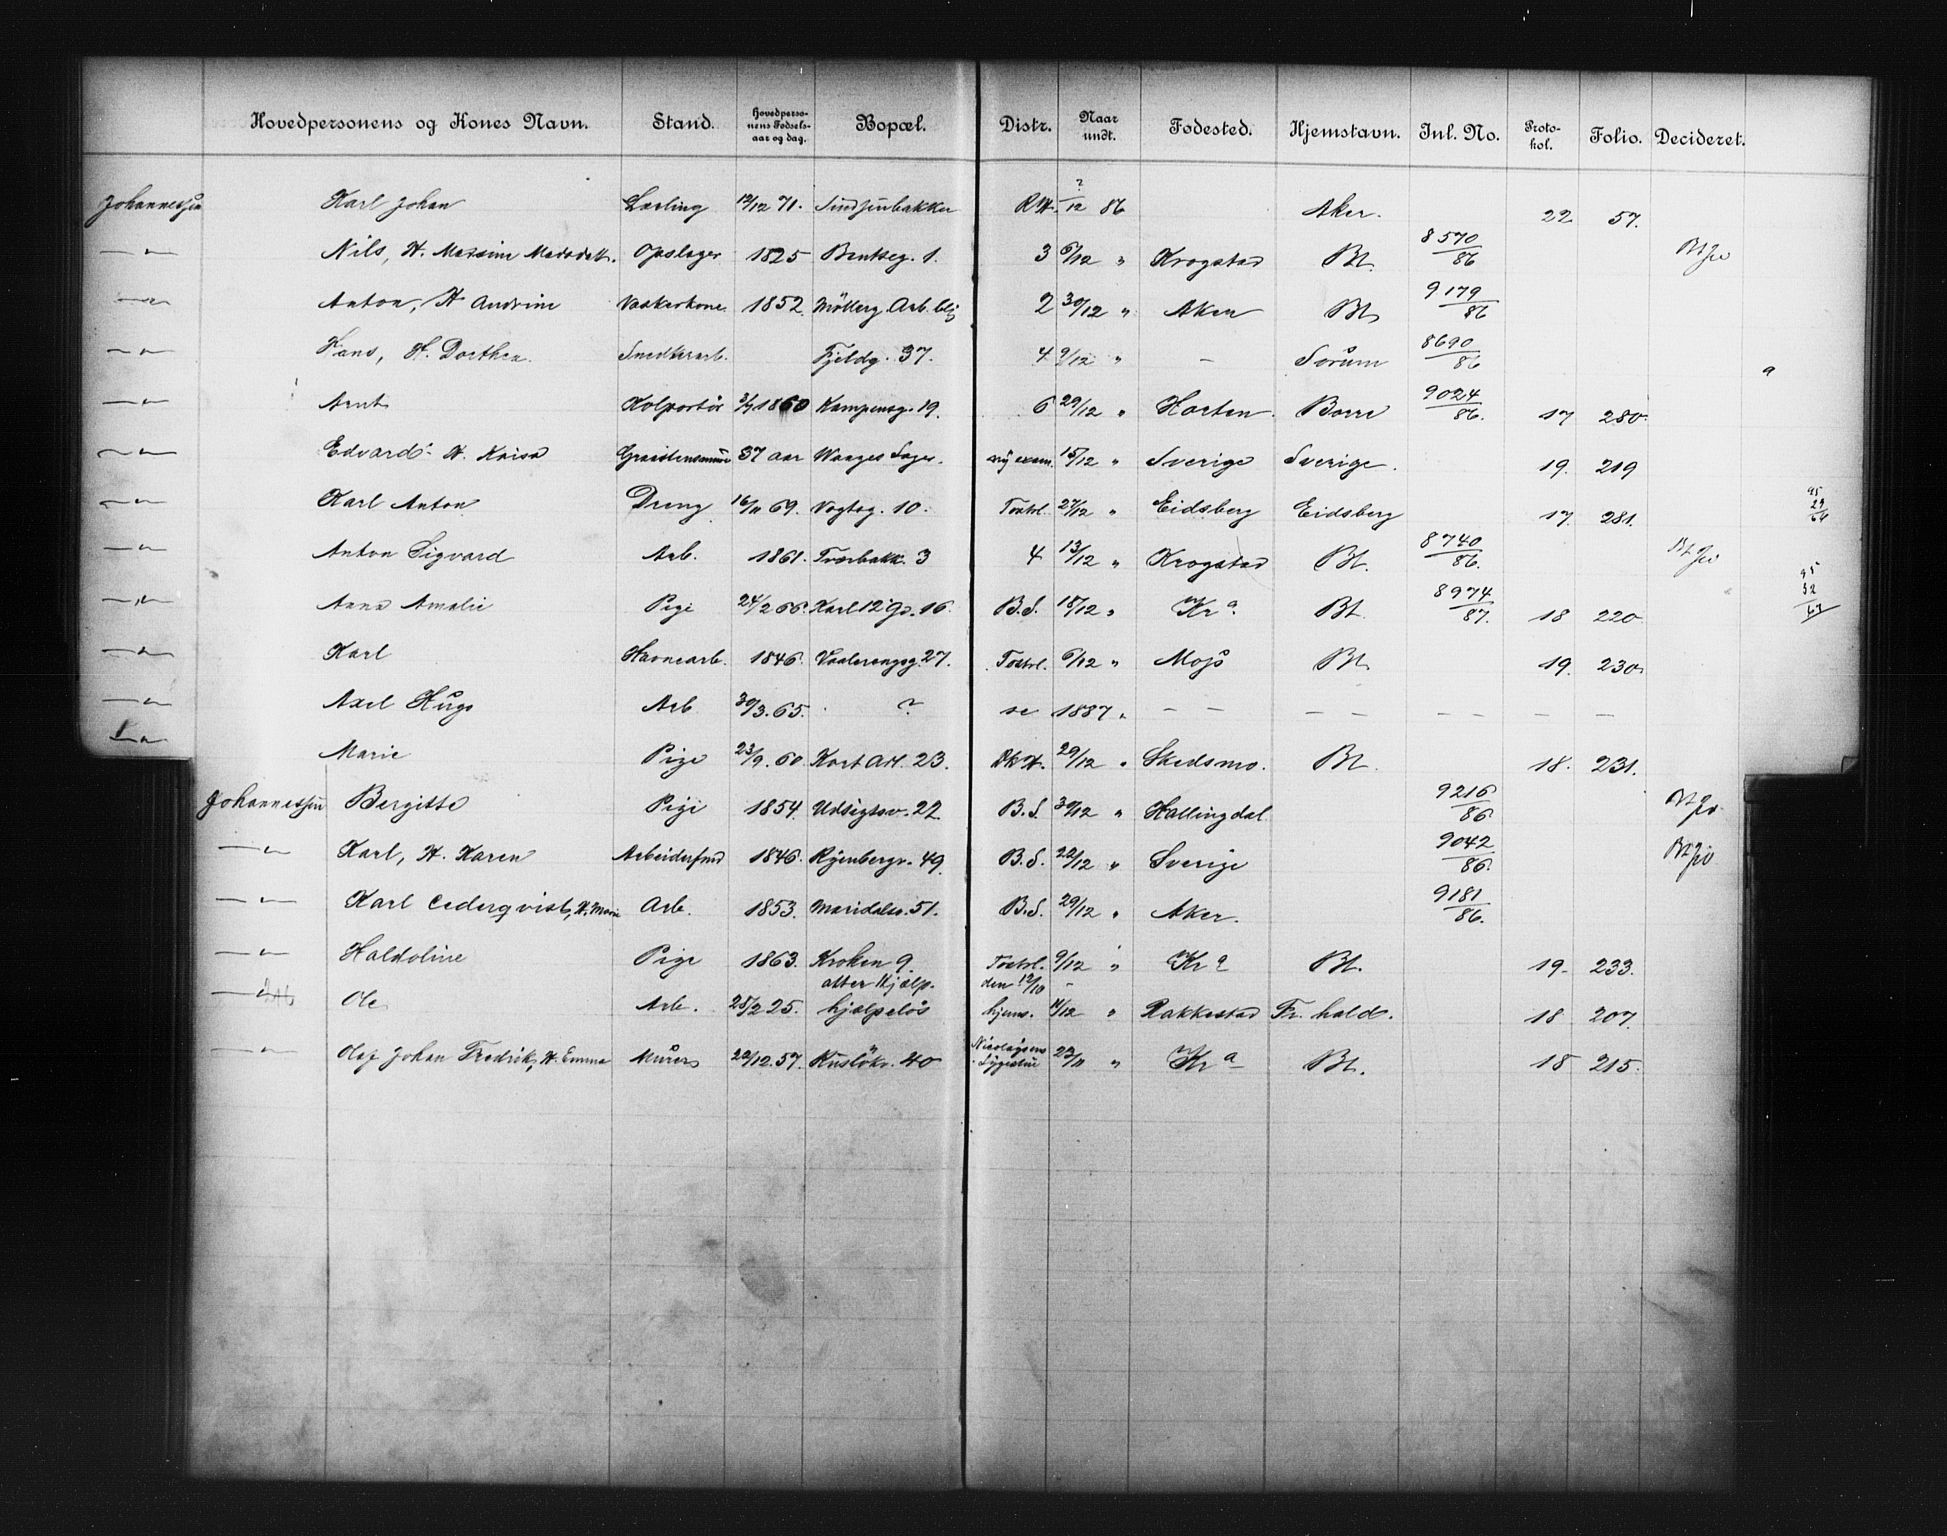 Hovedpersonens og Kones Navn. Stand. Hovedpersonens Fødselsaar og dag. Bopæl. Distr. Naar undt. Fødested. Hjemstavn. Inl. No. Protokol. Folio. Decideret.
Johannessen Karl Johan Lærling 12/12 71. ?/12 86 Aker. 22 57.
—〃— Nils, H. Opslager 1825 Bentseg. 1. 3 6/12 〃 Krogstad Bt. 8570/86
—〃— Anton, H. Andrine Vaskerkone 1852 Møllerg. Arb. 2 30/12 〃 Aker Bt. 9179/86
—〃— Hans, H. Dorthea Snedkerarb. Fjeldg. 37. 4 9/12 〃 — Sørum 8690/86 a
—〃— Arnt Kolportør 3/7 1860 Kampensg. 19. 6 29/12 〃 Horten Borre 9024/86. 17 280.
—〃— Edvard H. Kaisa 37 aar Waages Løger. ny exam. 15/12 〃 Sverige Sverige. 19. 219
—〃— Karl Anton Dreng 16/11 69. Vogtsg. 10. Tostrl. 27/12 〃 Eidsberg Eidsberg 17. 281.
—〃— Anton Sigvard Arb. 1861. Tverbakk. 3 4 13/12 〃 Krogstad Bt. 8740/86.
—〃— Anna Amalie Pige 24/2 66. Karl 12' Gd. 16. B.S. 18/12 〃 Kr a Bt. 8974/87. 18 220
—〃— Karl Havnearb. 1846. Vaalerengsg. 27. Tostrl. 6/12 〃 Moss Bt. 19. 230.
—〃— Axel Hugo Arb 30/3. 65. ? se 1887. — — — — — — —
—〃— Marie Pige 23/9. 60. Kort Arl. 23. 29/12 〃 Skedsmo. Bt. 18. 231.
Johannessen Bergitte Pige 1854. Udsigtsv. 22. B.S. 30/12 〃 Hallingdal 9216/86
—〃— Karl, H. Karen Arbeidsfmd 1846. Ryenbergv. 49. B.S. 22/12 〃 Sverige 9042/86.
—〃— Karl Cederqvist, H. Marie Arb. 1853. Maridalsv. 51. B.S. 29/12 〃 Aker. 9181/86.
—〃— Haldoline Pige 1863. Kroken 9. Tostrl. 9/12 〃 Kr a Bt. 19. 233.
atter Hjælp. den 12/10 —
—〃— Ole Arb. 25/2 25. hjælpeløs hjems. 14/12 〃 Rakkestad Fr. hald. 18 207.
—〃— Olaf Johan Fredrik, H. Emma Murer 22/12. 57. Huslökv. 40 Nicolaysens Sygestue 23/11 〃 Kr a Bt. 18 215.